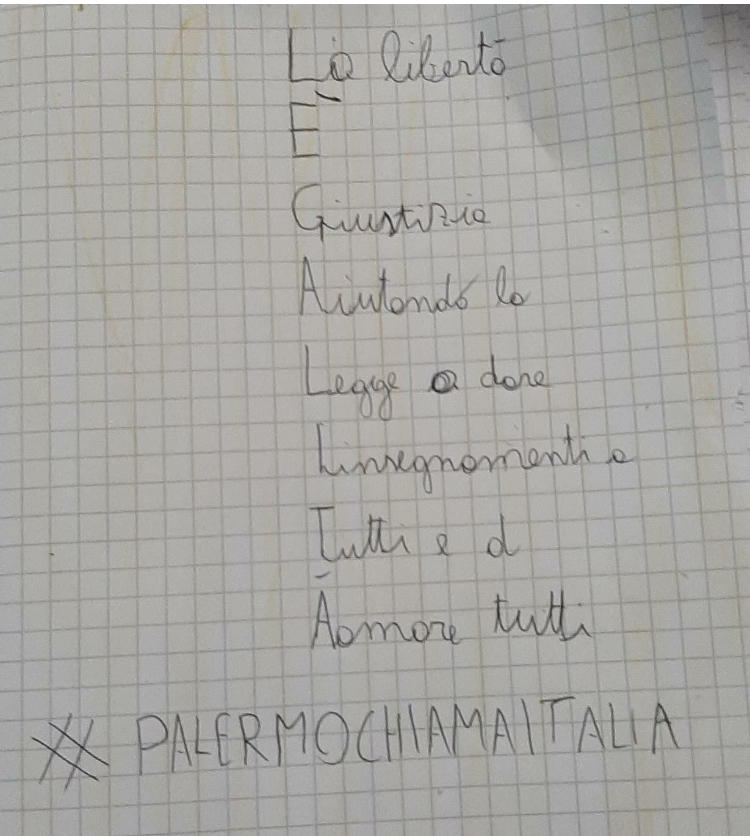 La libertà
È
Giustizia
Aiutando la
Legge a dare
Linsegnamenti a
Tutti e d
Aamare tutti
# PALERMOCHIAMAITALIA